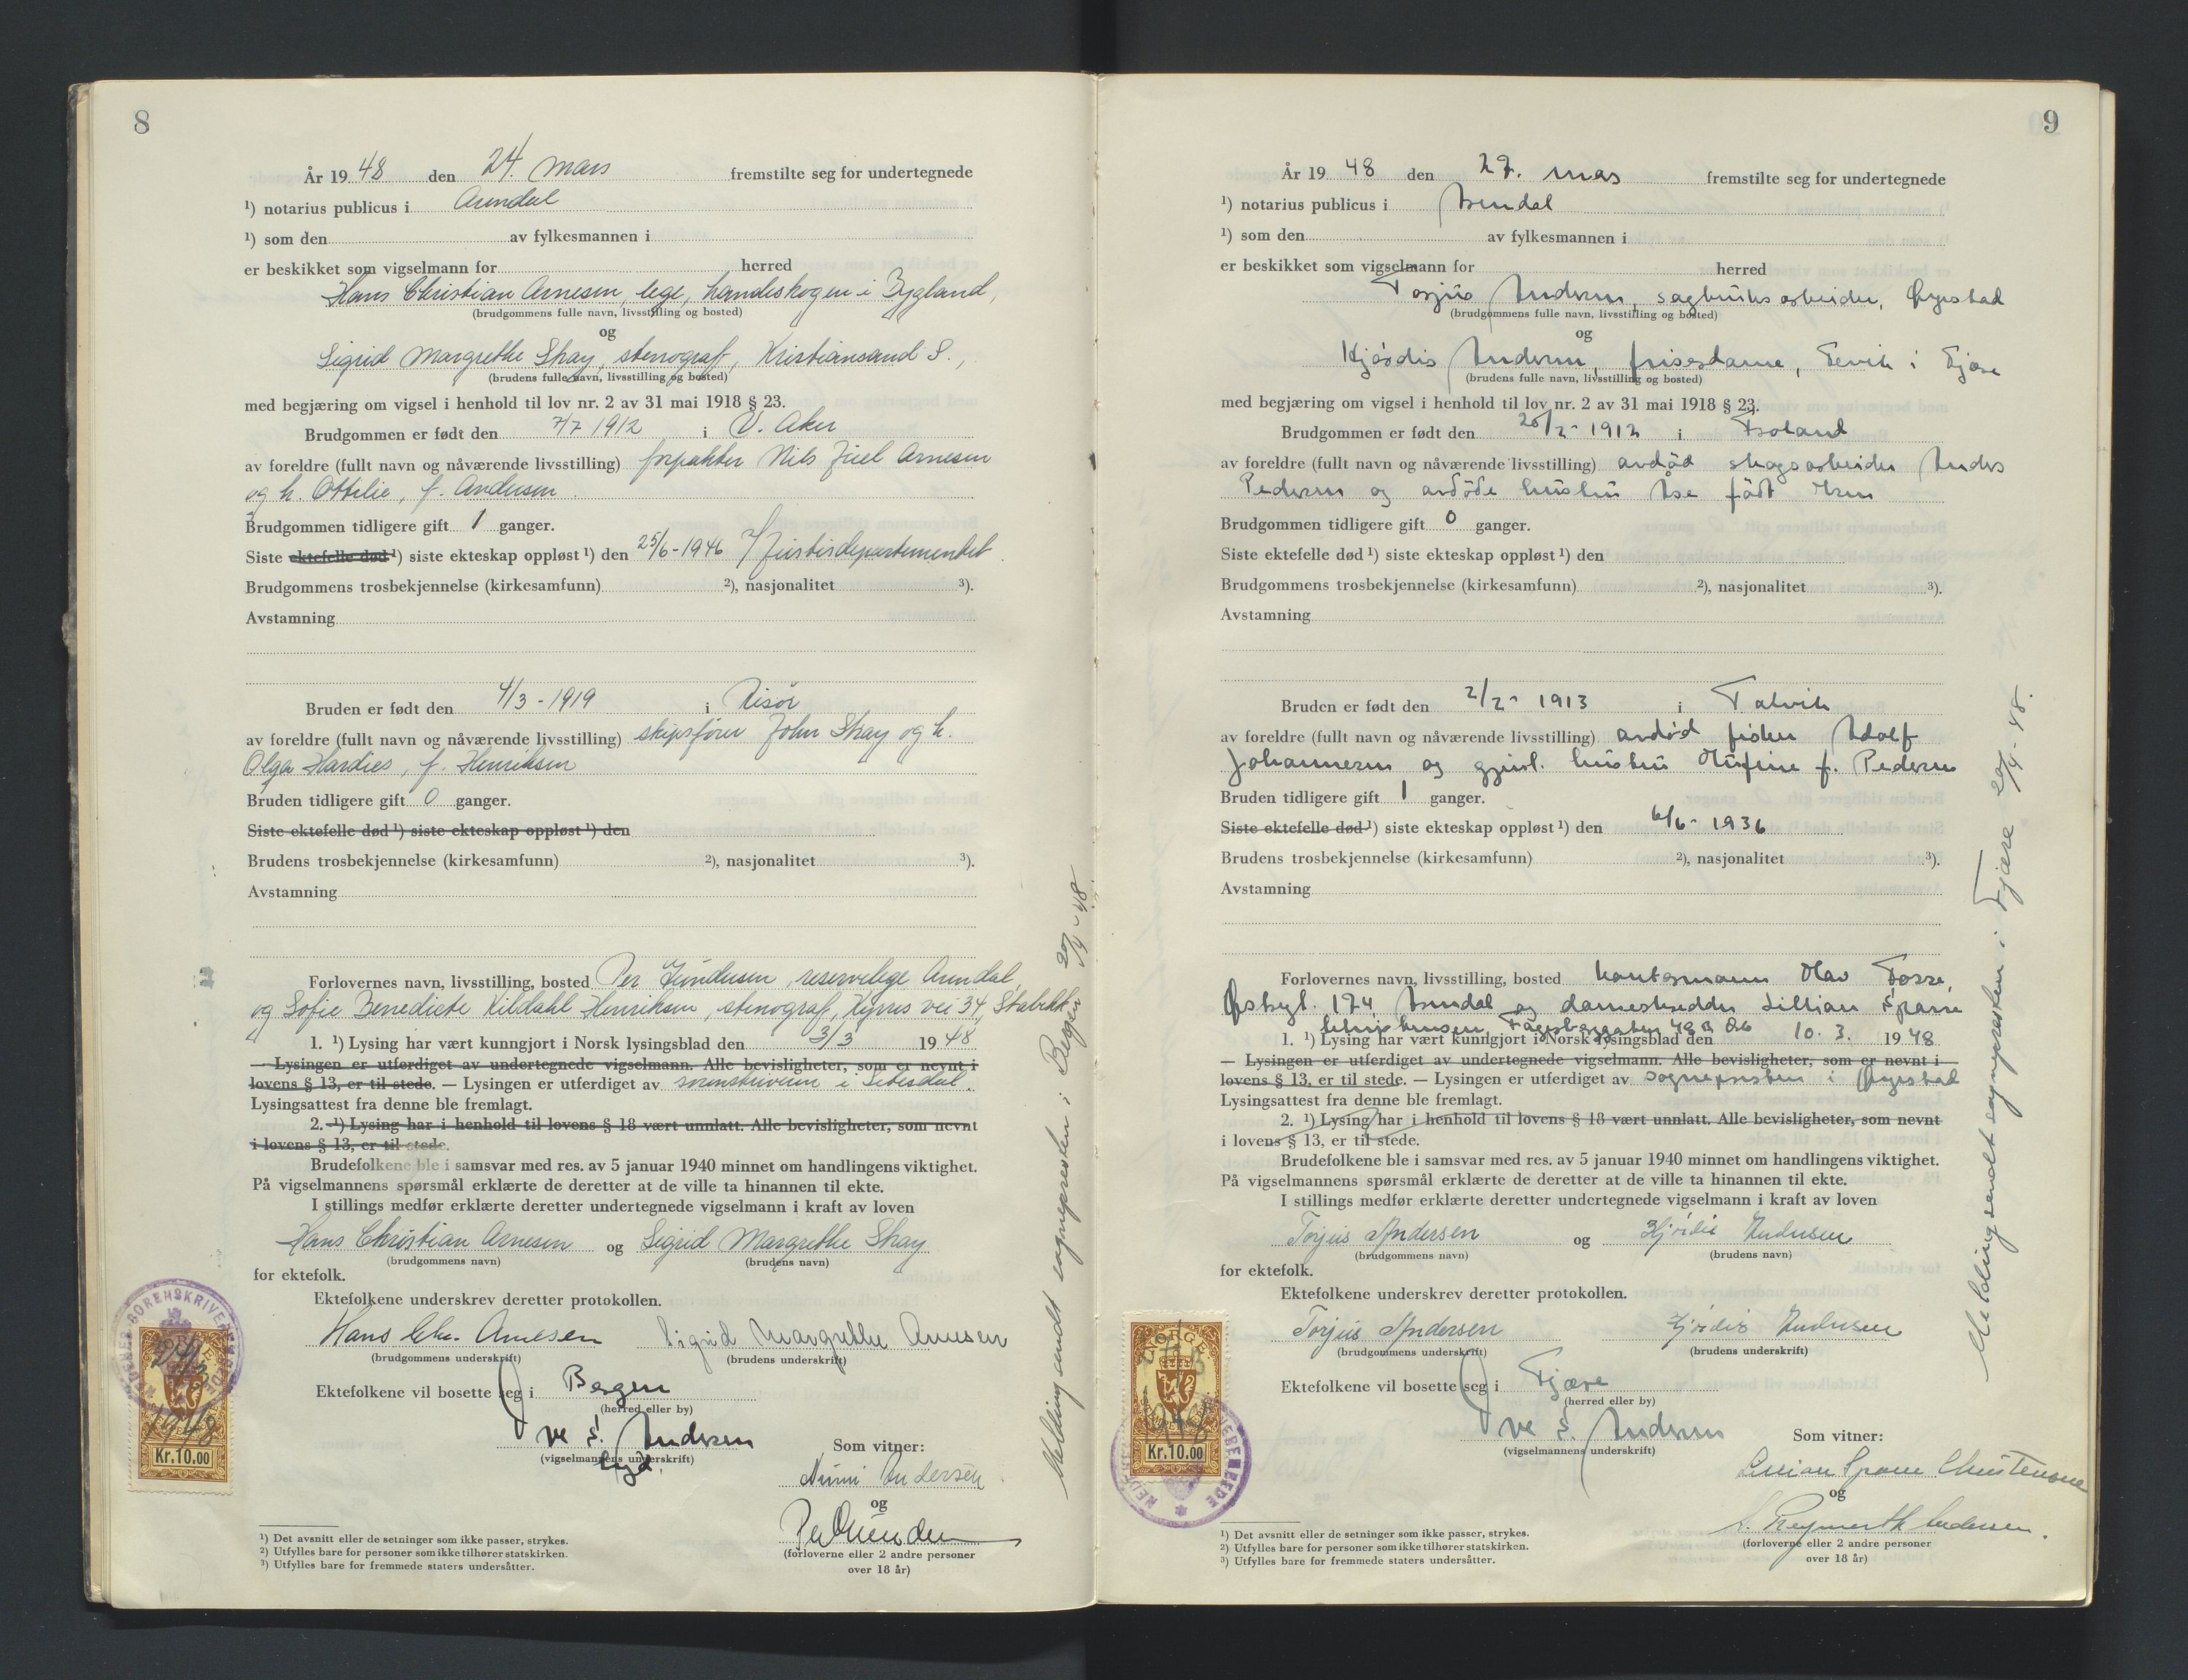 8
År 1948 den 24. mars fremstilte seg for undertegnede
¹) notarius publicus i Arendal
¹) som den av fylkesmannen i
er beskikket som vigselmann for herred
Hans Christian Arnesen, lege, i Bygland,
(brudgommens fulle navn, livsstilling og bosted)
og
Sigrid Margrethe Skay, stenograf, Kristiansand S.,
(brudens fulle navn, livsstilling og bosted)
med begjæring om vigsel i henhold til lov nr. 2 av 31 mai 1918 § 23.
Brudgommen er født den 7/7 1912 i V. Aker
av foreldre (fullt navn og nåværende livsstilling) forpakter Nils Juel Arnesen
og h. Ottilie, f. Andersen.
Brudgommen tidligere gift 1 ganger.
Siste ektefelle død ¹) siste ekteskap oppløst ¹) den 25/6-1946 Justisdepartementet.
Brudgommens trosbekjennelse (kirkesamfunn) ²), nasjonalitet ³).
Avstamning
Bruden er født den 4/3-1919 i Risør
av foreldre (fullt navn og nåværende livsstilling) skipsfører John Skay og h.
Olga Hardies, f. Henriksen
Bruden tidligere gift 0 ganger.
Siste ektefelle død ¹) siste ekteskap oppløst ¹) den
Brudens trosbekjennelse (kirkesamfunn) ²), nasjonalitet ³).
Avstamning
Forlovernes navn, livsstilling, bosted Per reservelege Arendal,
og Sofie Benedicte Kildahl Henriksen, stenograf, vei 34, Stabekk.
1. ¹) Lysing har vært kunngjort i Norsk lysingsblad den 3/3 1948
— Lysingen er utferdiget av undertegnede vigselmann. Alle bevisligheter, som er nevnt i
lovens § 13, er til stede. — Lysingen er utferdiget av sorenskriveren i Setesdal.
Lysingsattest fra denne ble fremlagt.
2. ¹) Lysing har i henhold til lovens § 18 vært unnlatt. Alle bevisligheter, som nevnt
i lovens § 13, er til stede.
Brudefolkene ble i samsvar med res. av 5 januar 1940 minnet om handlingens viktighet.
På vigselmannens spørsmål erklærte de deretter at de ville ta hinannen til ekte.
I stillings medfør erklærte deretter undertegnede vigselmann i kraft av loven
Hans Christian Arnesen og Sigrid Margrethe Skay
(brudgommens navn) (brudens navn)
for ektefolk.
Ektefolkene underskrev deretter protokollen.
Hans Chr. Arnesen Sigrid Margrethe Arnesen
(brudgommens underskrift) (brudens underskrift)
Ektefolkene vil bosette seg i Bergen
(herred eller by)
Andersen
(vigselmannens underskrift)
Som vitner:
Andersen
og
(forloverne eller 2 andre personer
over 18 år)
¹) Det avsnitt eller de setninger som ikke passer, strykes.
²) Utfylles bare for personer som ikke tilhører statskirken.
³) Utfylles bare for fremmede staters undersåtter.
NORGE
24/3
1948
Kr.10.00
Melding sendt sognepresten i Bergen 20/4-48.
9
År 1948 den 27. mars fremstilte seg for undertegnede
¹) notarius publicus i Arendal
¹) som den av fylkesmannen i
er beskikket som vigselmann for herred
Torjus Andersen, sagbruksarbeider, Øyestad
(brudgommens fulle navn, livsstilling og bosted)
og
Hjørdis Andersen, frisørdame, Fevik i Fjære
(brudens fulle navn, livsstilling og bosted)
med begjæring om vigsel i henhold til lov nr. 2 av 31 mai 1918 § 23.
Brudgommen er født den 1912 i Froland
av foreldre (fullt navn og nåværende livsstilling) avdød skogsarbeider Anders
Pedersen og avdøde hustru Åse født Olsen
Brudgommen tidligere gift 0 ganger.
Siste ektefelle død ¹) siste ekteskap oppløst ¹) den
Brudgommens trosbekjennelse (kirkesamfunn) ²), nasjonalitet ³).
Avstamning
Bruden er født den 2/2- 1913 i Talvik
av foreldre (fullt navn og nåværende livsstilling) avdød fisker Adolf
Johannesen og gjenl. hustru f. Pedersen
Bruden tidligere gift 1 ganger.
Siste ektefelle død ¹) siste ekteskap oppløst ¹) den 6/6- 1936
Brudens trosbekjennelse (kirkesamfunn) ²), nasjonalitet ³).
Avstamning
Forlovernes navn, livsstilling, bosted kontormann Olav Fosse,
Østregt. 174, Arendal og dameskredder Lillian Spane
Christensen, Fagerborggaten 48 B Oslo
1. ¹) Lysing har vært kunngjort i Norsk lysingsblad den 10. 3. 1948
— Lysingen er utferdiget av undertegnede vigselmann. Alle bevisligheter, som er nevnt i
lovens § 13, er til stede. — Lysingen er utferdiget av sognepresten i Øyestad
Lysingsattest fra denne ble fremlagt.
2. ¹) Lysing har i henhold til lovens § 18 vært unnlatt. Alle bevisligheter, som nevnt
i lovens § 13, er til stede.
Brudefolkene ble i samsvar med res. av 5 januar 1940 minnet om handlingens viktighet.
På vigselmannens spørsmål erklærte de deretter at de ville ta hinannen til ekte.
I stillings medfør erklærte deretter undertegnede vigselmann i kraft av loven
Torjus Andersen og Hjørdis Andersen
(brudgommens navn) (brudens navn)
for ektefolk.
Ektefolkene underskrev deretter protokollen.
Torjus Andersen Hjørdis Andersen
(brudgommens underskrift) (brudens underskrift)
Ektefolkene vil bosette seg i Fjære
(herred eller by)
Andersen
(vigselmannens underskrift)
Som vitner:
Lillian Spane Christensen
og
Andersen.
(forloverne eller 2 andre personer
over 18 år)
¹) Det avsnitt eller de setninger som ikke passer, strykes.
²) Utfylles bare for personer som ikke tilhører statskirken.
³) Utfylles bare for fremmede staters undersåtter.
NORGE
Kr.10.00
Melding sendt sognepresten i Fjære 20/4-48.